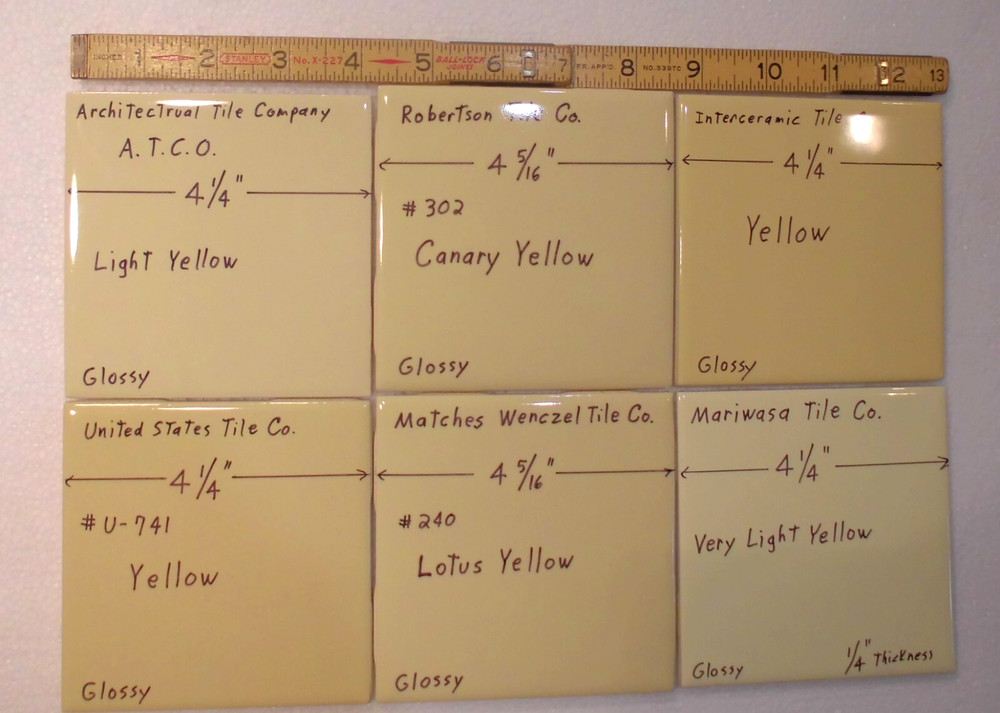 INCHES 1 2 STANLEY 3 No. X-227 4 5 BALL-LOCK JOINTS 6 7 PR. APP'D. 8 NO. 939TC 9 10 11 12 13
Architectrual Tile Company
A.T.C.O.
4 1/4"
Light Yellow
Glossy
Robertson Tile Co.
4 5/16"
# 302
Canary Yellow
Glossy
Interceramic Tile
4 1/4"
Yellow
Glossy
United States Tile Co.
4 1/4"
# U-741
Yellow
Glossy
Matches Wenczel Tile Co.
4 5/16"
# 240
Lotus Yellow
Glossy
Mariwasa Tile Co.
4 1/4"
Very Light Yellow
Glossy
1/4" Thickness